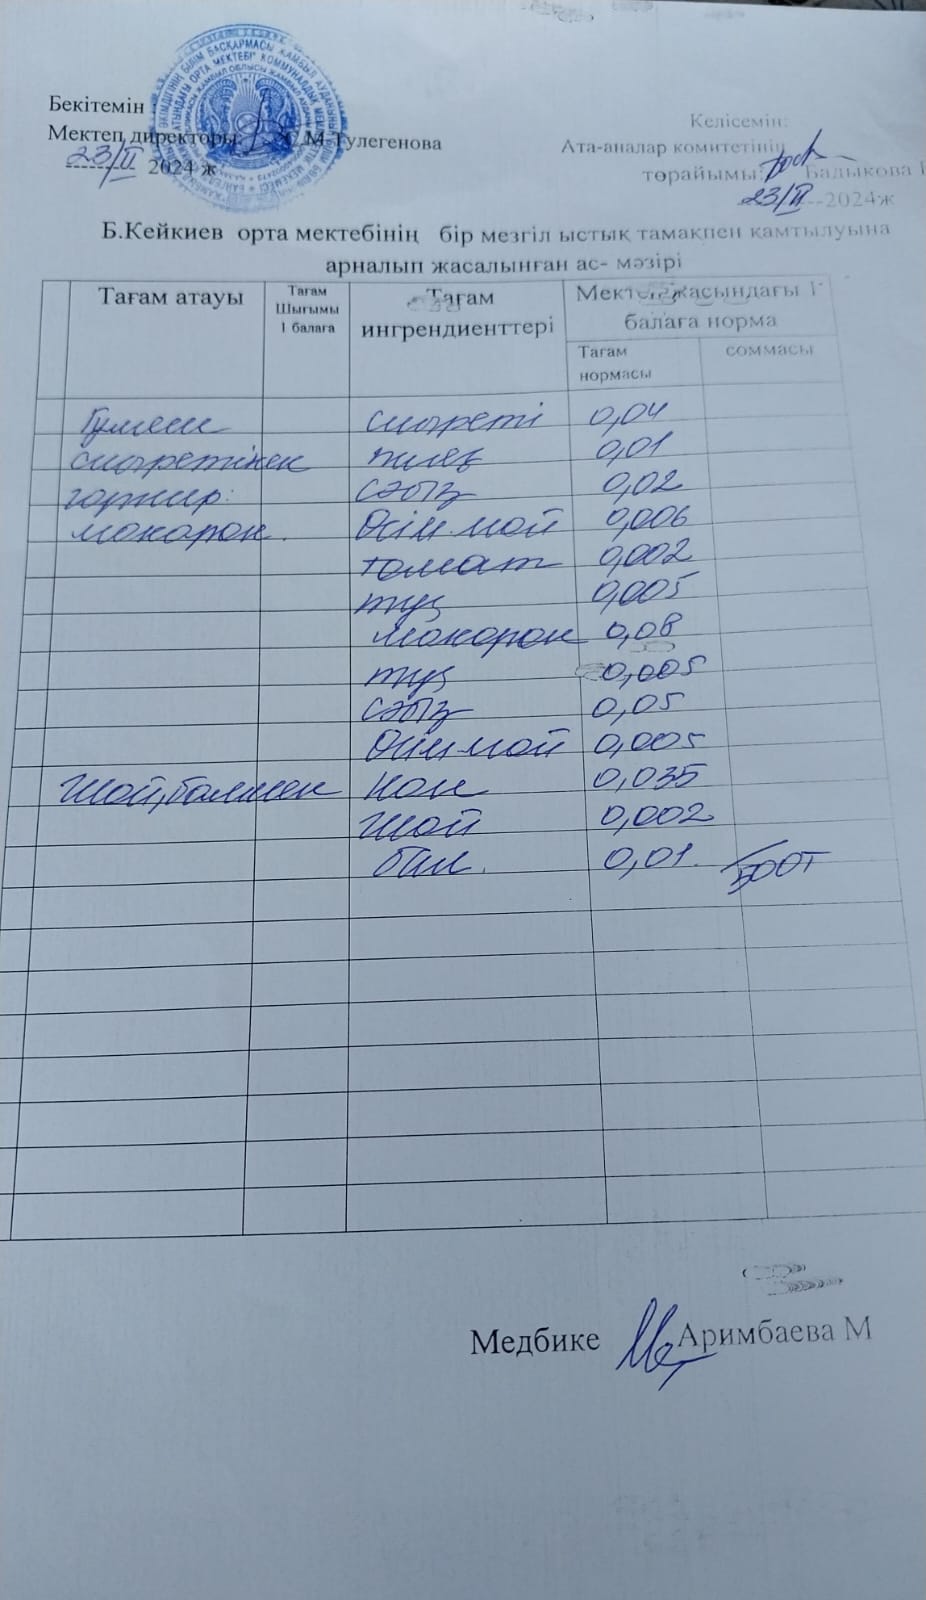 Бекітемін
Мектеп директоры С.М.Тулегенова
23/II 2024 ж
Келісемін:
Ата-аналар комитетінің
төрайымы: Бадыкова
23/II 2024ж
Б.Кейкиев орта мектебінің бір мезгіл ыстық тамақпен қамтылуына
арналып жасалынған ас- мәзірі
Тағам атауы
Тағам
Шығымы
1 балаға
Тағам
ингрендиенттері
Мектеп жасындағы 1
балаға норма
Тағам
нормасы
соммасы
Гуляш 0,04
пияз 0,01
гарнир: сәбіз 0,02
макарон. Өсім май 0,006
томат 0,002
тұз 0,005
макарон 0,08
тұз 0,005
сәбіз 0,05
Өсім май 0,005
Шай, балмен Нан 0,035
Шай 0,002
бал. 0,01. 500т
Медбике Аримбаева М